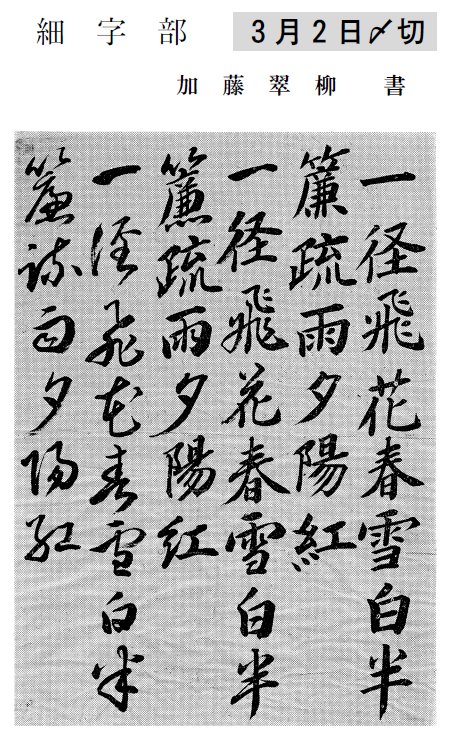 細字部
3月2日〆切
加藤翠柳 書
一径飛花春雪白半
簾疏雨夕陽紅
一径飛花春雪白半
簾疏雨夕陽紅
一径飛花春雪白半
簾疏雨夕陽紅